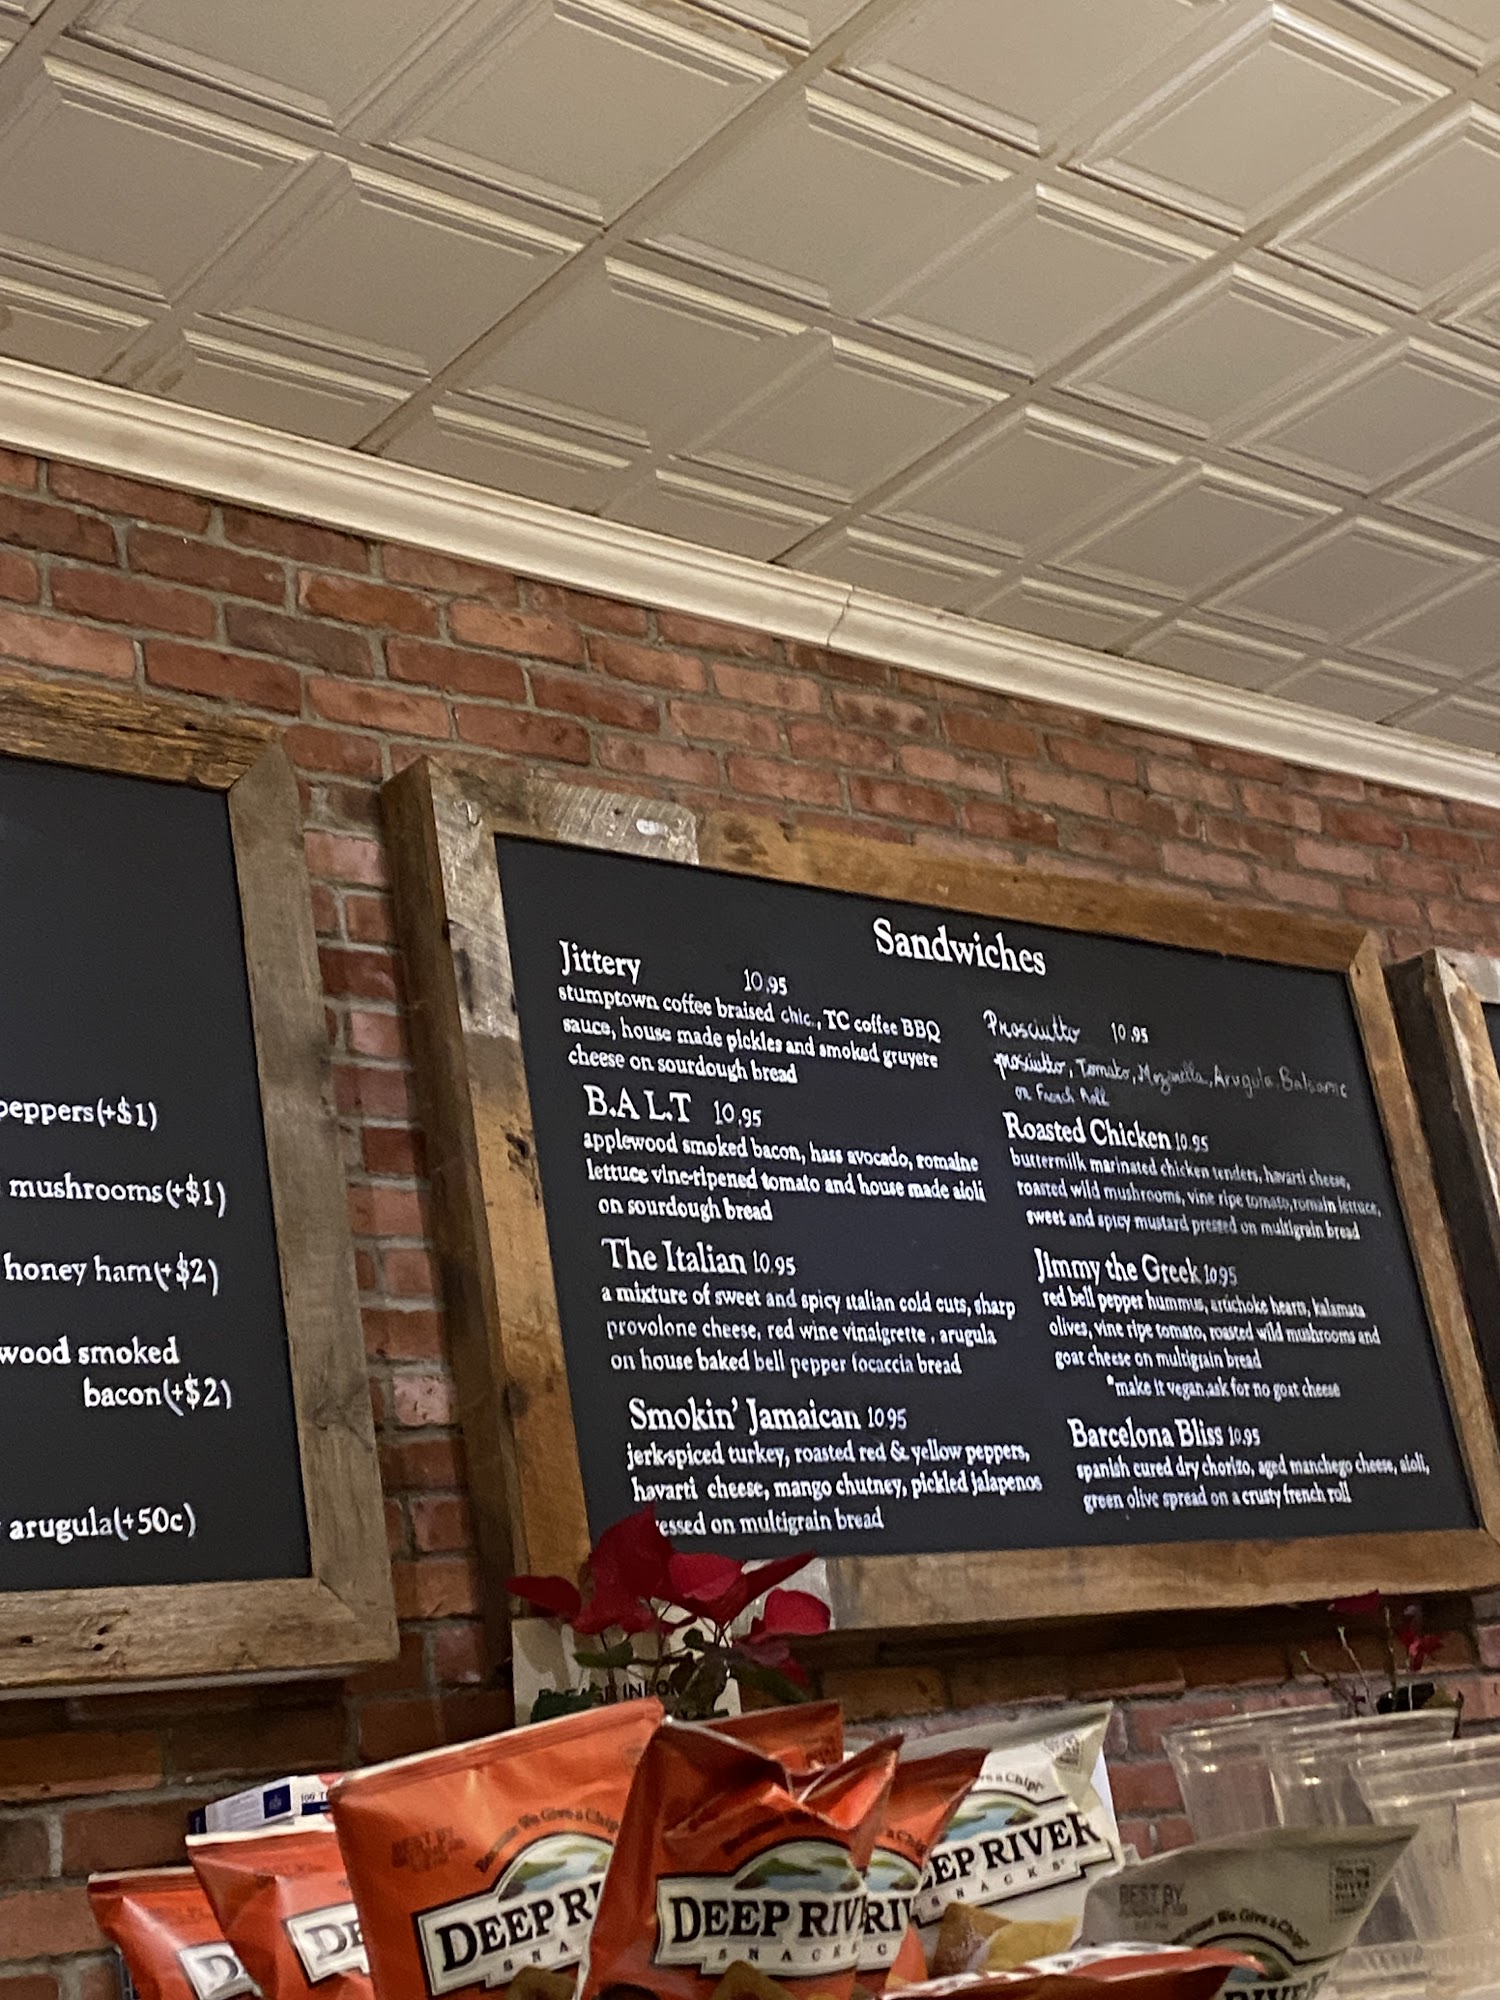 peppers(+$1)
mushrooms(+$1)
honey ham(+$2)
wood smoked
bacon(+$2)
arugula(+50c)
Sandwiches
Jittery 10.95
stumptown coffee braised chic., TC coffee BBQ
sauce, house made pickles and smoked gruyere
cheese on sourdough bread
B.A L.T 10.95
applewood smoked bacon, hass avocado, romaine
lettuce vine-ripened tomato and house made aioli
on sourdough bread
The Italian 10.95
a mixture of sweet and spicy italian cold cuts, sharp
provolone cheese, red wine vinaigrette , arugula
on house baked bell pepper focaccia bread
Smokin' Jamaican 10.95
jerk-spiced turkey, roasted red & yellow peppers,
havarti cheese, mango chutney, pickled jalapenos
essed on multigrain bread
Prosciutto 10.95
prosciutto, Tomato, Mozzarella, Arugula, Balsamic
on French Roll
Roasted Chicken 10.95
buttermilk marinated chicken tenders, havarti cheese,
roasted wild mushrooms, vine ripe tomato,romain lettuce,
sweet and spicy mustard pressed on multigrain bread
Jimmy the Greek 10.95
red bell pepper hummus, artichoke hearts, kalamata
olives, vine ripe tomato, roasted wild mushrooms and
goat cheese on multigrain bread
*make it vegan,ask for no goat cheese
Barcelona Bliss 10.95
spanish cured dry chorizo, aged manchego cheese, aioli,
green olive spread on a crusty french roll
Because We Give a Chip!
DEEP R
DEEP RIV
SNACKS
EP RIVER
SNACKS
BEST BY
Because We Give a Chip!
RIVER